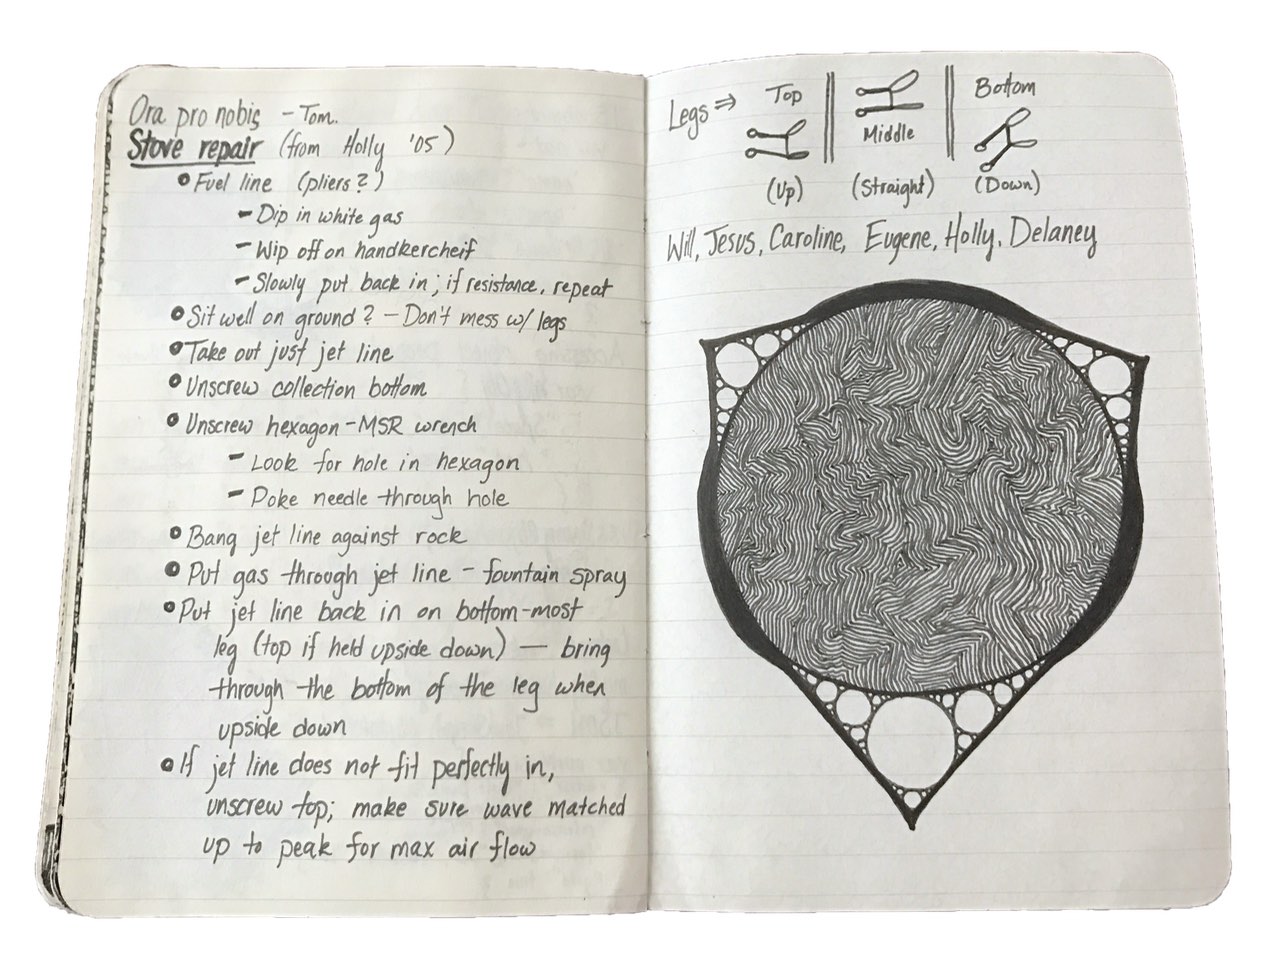 Ora pro nobis - Tom.
Stove repair (from Holly '05)
• Fuel line (pliers?)
- Dip in white gas
- Wip off on handkercheif
- Slowly put back in; if resistance, repeat
• Sit well on ground? - Don't mess w/ legs
• Take out just jet line
• Unscrew collection bottom
• Unscrew hexagon - MSR wrench
- Look for hole in hexagon
- Poke needle through hole
• Bang jet line against rock
• Put gas through jet line - fountain spray
• Put jet line back in on bottom-most
leg (top if held upside down) — bring
through the bottom of the leg when
upside down
• If jet line does not fit perfectly in,
unscrew top; make sure wave matched
up to peak for max air flow
Legs ⇒ Top
(Up)
Middle
(Straight)
Bottom
(Down)
Will, Jesus, Caroline, Eugene, Holly, Delaney